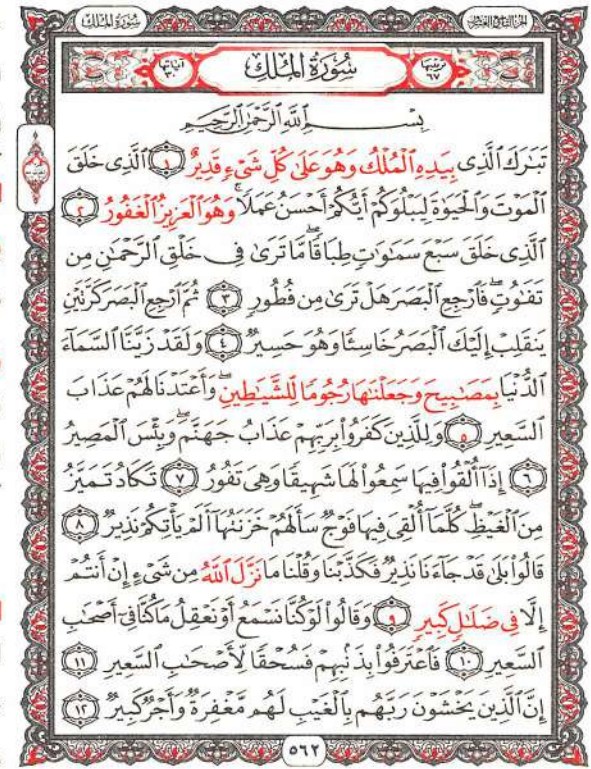 الجزء التاسع والعشرون سورة الملك
ترتيبها ٦٧ سُورَةُ المُلْكِ آياتها ٣٠
بِسْمِ ٱللَّهِ ٱلرَّحْمَٰنِ ٱلرَّحِيمِ
تَبَٰرَكَ ٱلَّذِى بِيَدِهِ ٱلْمُلْكُ وَهُوَ عَلَىٰ كُلِّ شَىْءٍ قَدِيرٌ ١ ٱلَّذِى خَلَقَ
ٱلْمَوْتَ وَٱلْحَيَوٰةَ لِيَبْلُوَكُمْ أَيُّكُمْ أَحْسَنُ عَمَلًا ۚ وَهُوَ ٱلْعَزِيزُ ٱلْغَفُورُ ٢
ٱلَّذِى خَلَقَ سَبْعَ سَمَٰوَٰتٍ طِبَاقًا ۖ مَّا تَرَىٰ فِى خَلْقِ ٱلرَّحْمَٰنِ مِن
تَفَٰوُتٍ ۖ فَٱرْجِعِ ٱلْبَصَرَ هَلْ تَرَىٰ مِن فُطُورٍ ٣ ثُمَّ ٱرْجِعِ ٱلْبَصَرَ كَرَّتَيْنِ
يَنقَلِبْ إِلَيْكَ ٱلْبَصَرُ خَاسِئًا وَهُوَ حَسِيرٌ ٤ وَلَقَدْ زَيَّنَّا ٱلسَّمَآءَ
ٱلدُّنْيَا بِمَصَٰبِيحَ وَجَعَلْنَٰهَا رُجُومًا لِّلشَّيَٰطِينِ ۖ وَأَعْتَدْنَا لَهُمْ عَذَابَ
ٱلسَّعِيرِ ٥ وَلِلَّذِينَ كَفَرُوا۟ بِرَبِّهِمْ عَذَابُ جَهَنَّمَ ۖ وَبِئْسَ ٱلْمَصِيرُ
٦ إِذَآ أُلْقُوا۟ فِيهَا سَمِعُوا۟ لَهَا شَهِيقًا وَهِىَ تَفُورُ ٧ تَكَادُ تَمَيَّزُ
مِنَ ٱلْغَيْظِ ۖ كُلَّمَآ أُلْقِىَ فِيهَا فَوْجٌ سَأَلَهُمْ خَزَنَتُهَآ أَلَمْ يَأْتِكُمْ نَذِيرٌ ٨
قَالُوا۟ بَلَىٰ قَدْ جَآءَنَا نَذِيرٌ فَكَذَّبْنَا وَقُلْنَا مَا نَزَّلَ ٱللَّهُ مِن شَىْءٍ إِنْ أَنتُمْ
إِلَّا فِى ضَلَٰلٍ كَبِيرٍ ٩ وَقَالُوا۟ لَوْ كُنَّا نَسْمَعُ أَوْ نَعْقِلُ مَا كُنَّا فِىٓ أَصْحَٰبِ
ٱلسَّعِيرِ ١٠ فَٱعْتَرَفُوا۟ بِذَنۢبِهِمْ فَسُحْقًا لِّأَصْحَٰبِ ٱلسَّعِيرِ ١١
إِنَّ ٱلَّذِينَ يَخْشَوْنَ رَبَّهُم بِٱلْغَيْبِ لَهُم مَّغْفِرَةٌ وَأَجْرٌ كَبِيرٌ ١٢
٥٦٢